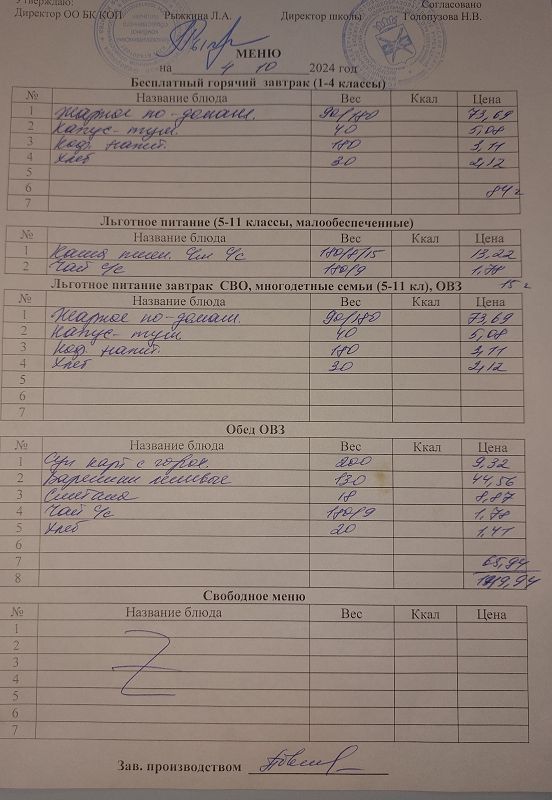 Утверждаю: Согласовано
Директор ОО БК КОП Рыжкина Л.А. Директор школы Голопузова Н.В.
МЕНЮ
на 4 10 2024 год
Бесплатный горячий завтрак (1-4 классы)
№ Название блюда Вес Ккал Цена
1 Жаркое по-домаш. 90/180 73,69
2 Капус- туш. 40 5,08
3 Коф. напит. 180 3,11
4 Хлеб 30 2,12
5
6 84
7
Льготное питание (5-11 классы, малообеспеченные)
№ Название блюда Вес Ккал Цена
1 Каша с/с 180/5/15 13,22
2 Чай с/с 180/9 1,78
Льготное питание завтрак СВО, многодетные семьи (5-11 кл), ОВЗ 15
№ Название блюда Вес Ккал Цена
1 Жаркое по-домаш. 90/180 73,69
2 Капус- туш 40 5,08
3 Коф. напит. 180 3,11
4 Хлеб 30 2,12
5
6
7
Обед ОВЗ
№ Название блюда Вес Ккал Цена
1 Суп карт с горох. 200 9,32
2 Вареники ленивые 130 44,56
3 Сметана 18 8,87
4 Чай с/с 180/9 1,78
5 Хлеб 20 1,41
6
7 65,94
8 149,94
Свободное меню
№ Название блюда Вес Ккал Цена
1
2
3
4
5
6
7
Зав. производством